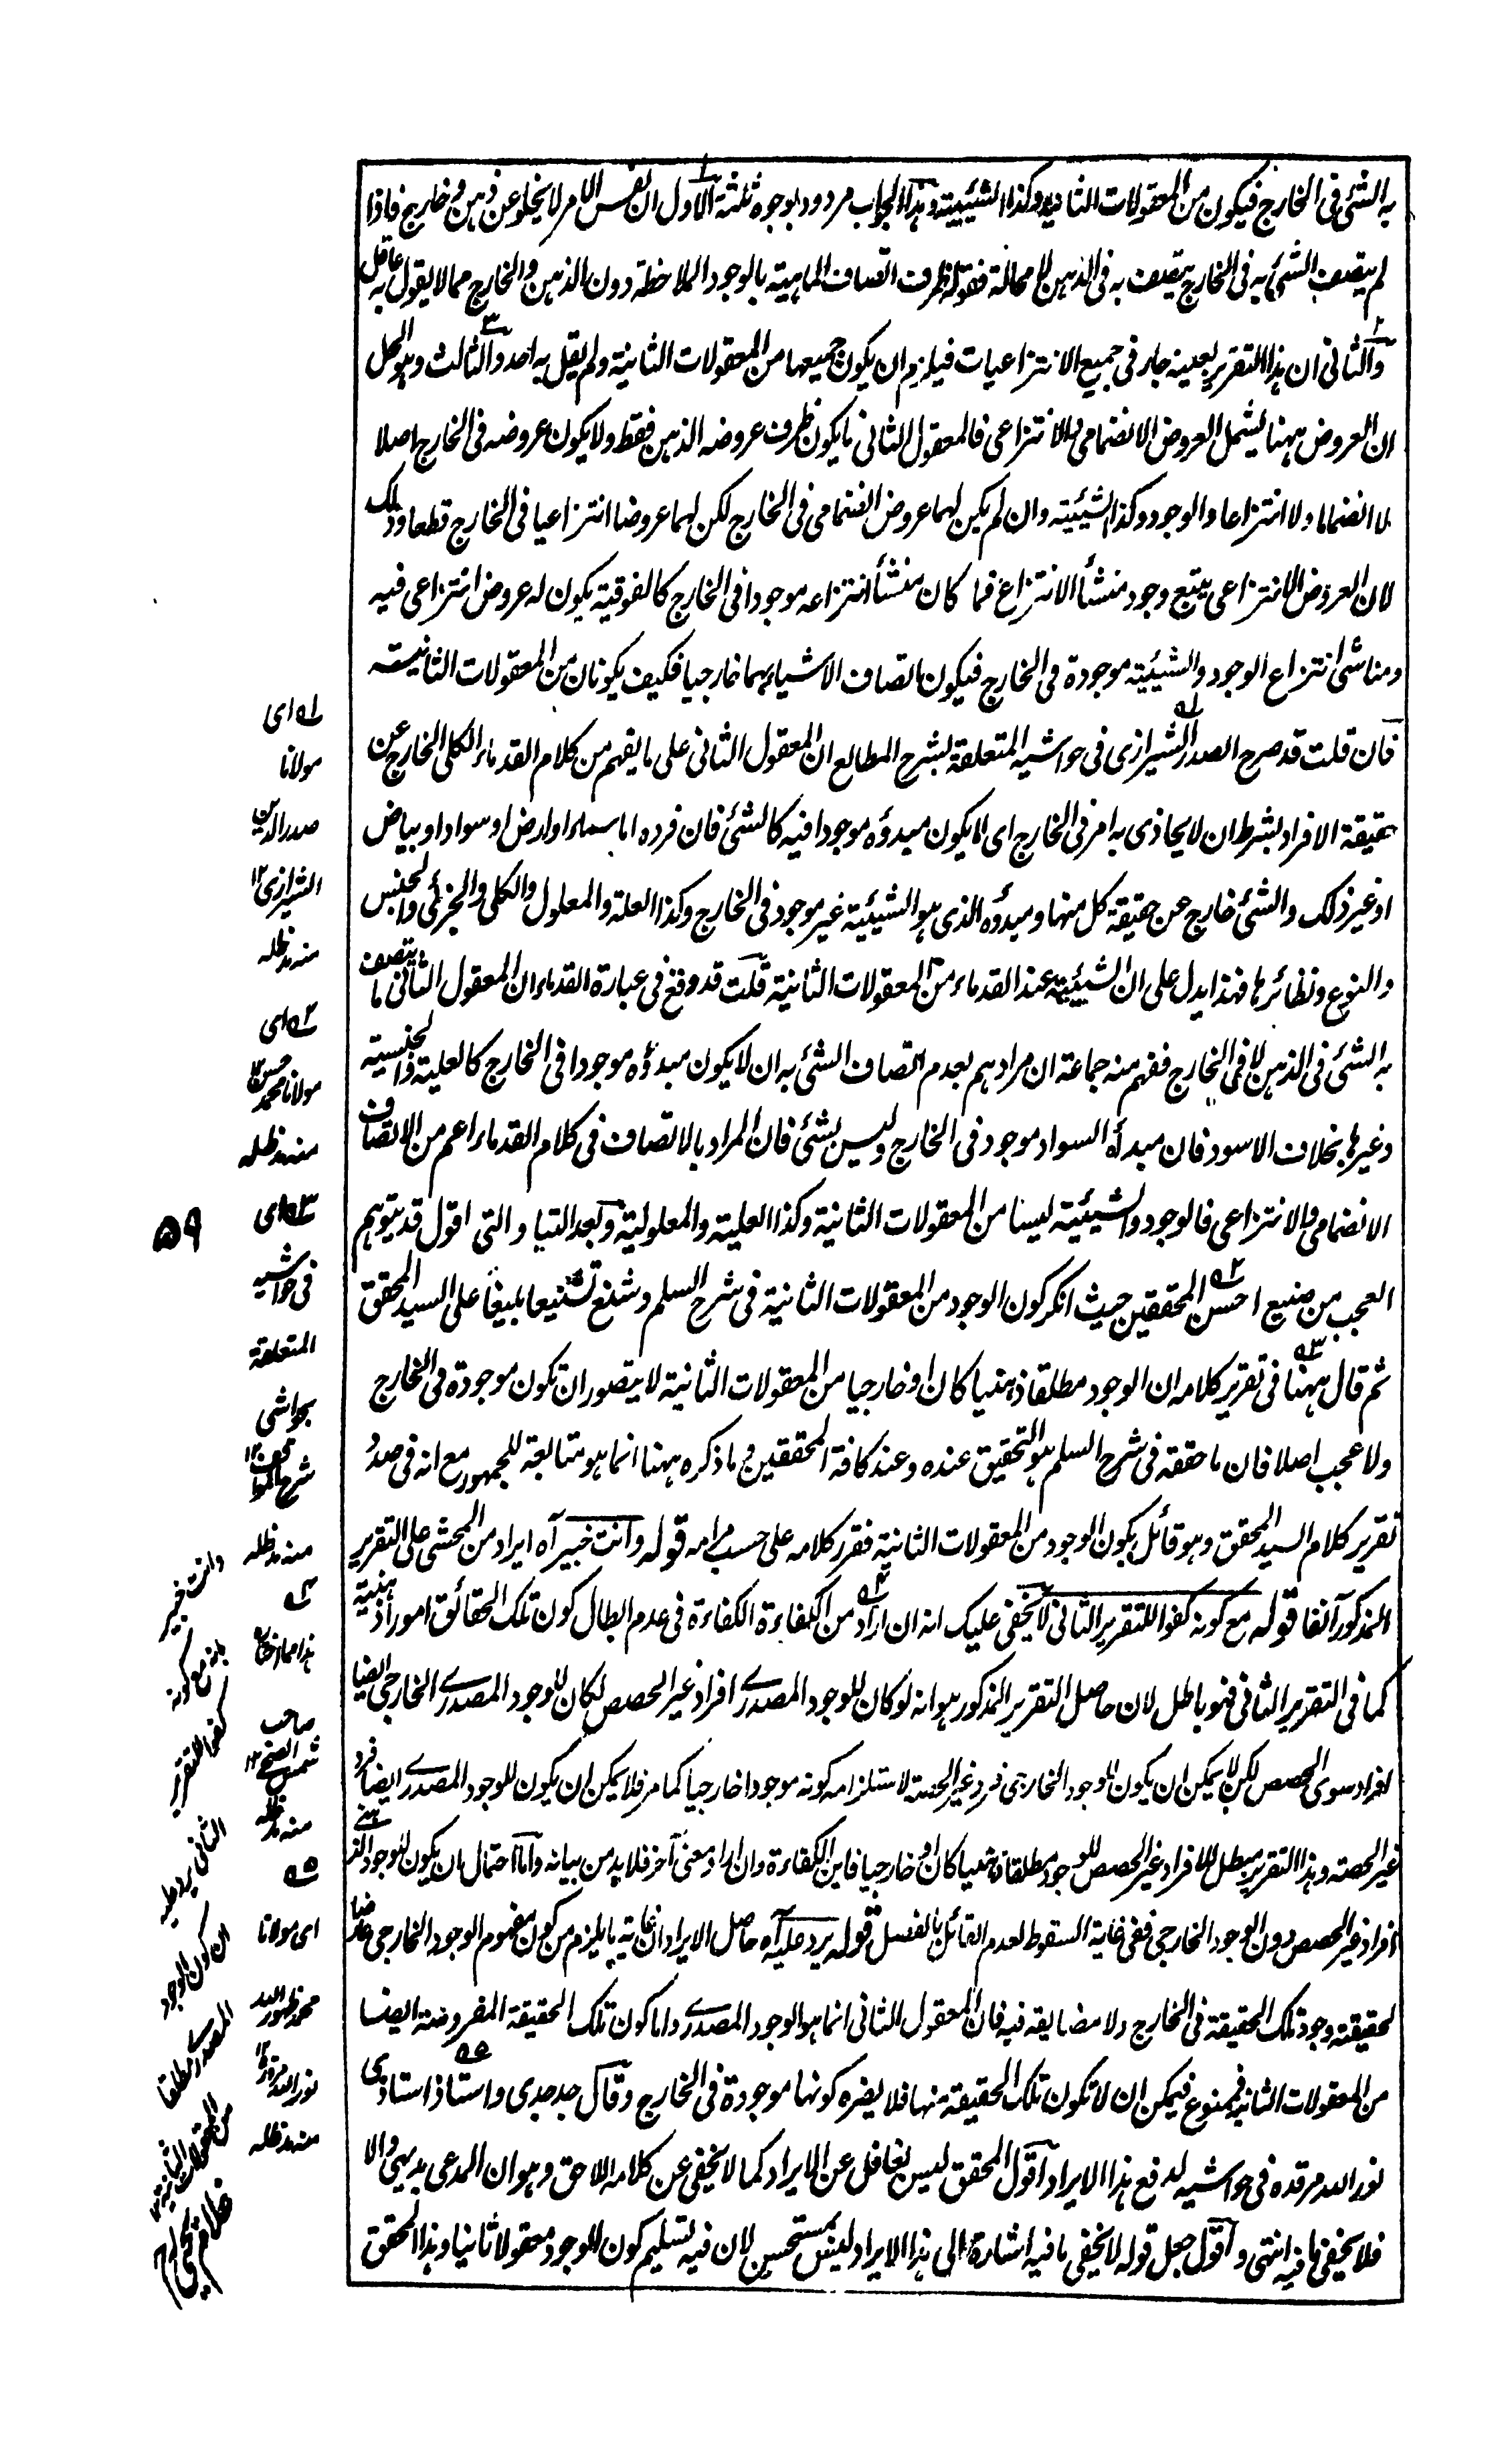 به الشئ فى الخارج فيكون من المعقولات الثانية وكذا الشيئية وهذا الجواب مردود بوجوه ثلثة الاول ان نفس الامر لا يخلو عن ذهن وخارج فاذا
لم يتصف الشئ به فى الخارج يتصف به فى الذهن لا محالة فقوله ظرف اتصاف الماهية بالوجود الملاحظة دون الذهن والخارج مما لا يقول به عاقل
والثانى ان هذا التقرير بعينه جار فى جميع الانتزاعيات فيلزم ان يكون جميعها من المعقولات الثانية ولم يقل به احد والثالث وهو الحل
ان العروض ههنا يشمل العروض الانضمامى والانتزاعى فالمعقول الثانى ما يكون ظرف عروضه الذهن فقط ولا يكون عروضه فى الخارج اصلا
لا انضماما ولا انتزاعا والوجود وكذا الشيئية وان لم يكن لهما عروض انضمامى فى الخارج لكن لهما عروضا انتزاعيا فى الخارج قطعا وذلك
لان العروض الانتزاعى يتبع وجود منشأ الانتزاع فما كان منشأ انتزاعه موجودا فى الخارج كالفوقية يكون له عروض انتزاعى فيه
ومناشئ انتزاع الوجود والشيئية موجودة فى الخارج فيكون اتصاف الاشياء بهما خارجيا فكيف يكونان من المعقولات الثانية
فان قلت قد صرح الصدر الشيرازى فى حواشيه المتعلقة بشرح المطالع ان المعقول الثانى على ما يفهم من كلام القدماء الكلى الخارج عن
حقيقة الافراد بشرط ان لا يحاذى به امر فى الخارج اى لا يكون مبدؤه موجودا فيه كالشئ فان فرده اما سماء او ارض او سواد او بياض
او غير ذلك والشئ خارج عن حقيقة كل منها ومبدؤه الذى هو الشيئية غير موجود فى الخارج وكذا العلة والمعلول والكلى والجزئى والجنس
والنوع ونظائرها فهذا يدل على ان الشيئية عند القدماء من المعقولات الثانية قلت قد وقع فى عبارة القدماء ان المعقول الثانى ما يتصف
به الشئ فى الذهن لا فى الخارج ففهم منه جماعة ان مرادهم بعدم اتصاف الشئ به ان لا يكون مبدؤه موجودا فى الخارج كالعلية والجنسية
وغيرها بخلاف الاسود فان مبدأه السواد موجود فى الخارج وليس بشئ فان المراد بالاتصاف فى كلام القدماء اعم من الاتصاف
الانضمامى والانتزاعى فالوجود والشيئية ليسا من المعقولات الثانية وكذا العلية والمعلولية وبعد التيا والتى اقول قد يتوهم
العجب من صنيع احسن المحققين حيث انكر كون الوجود من المعقولات الثانية فى شرح السلم وشنع تشنيعا بليغا على السيد المحقق
ثم قال ههنا فى تقرير كلامه ان الوجود مطلقا ذهنيا كان او خارجيا من المعقولات الثانية لا يتصور ان تكون موجودة فى الخارج
ولا عجب اصلا فان ما حققه فى شرح السلم هو التحقيق عنده وعند كافة المحققين وما ذكره ههنا انما هو متابعة للجمهور مع انه فى صدد
تقرير كلام السيد المحقق وهو قائل بكون الوجود من المعقولات الثانية فقرر كلامه على حسب مرامه قوله وانت خبير آه ايراد من المحشى على التقرير
المذكور آنفا قوله مع كونه كفوا للتقرير الثانى لا يخفى عليك انه ان اراد من الكفاءة الكفاءة فى عدم ابطال كون تلك الحقائق امورا ذهنية
كما فى التقرير الثانى فهو باطل لان حاصل التقرير المذكور هو انه لو كان للوجود المصدرى افراد غير الحصص لكان للوجود المصدرى الخارجى ايضا
افراد سوى الحصص لكن لا يمكن ان يكون للوجود الخارجى فرد غير الحصة لاستلزامه كونه موجودا خارجيا كما مر فلا يمكن ان يكون للوجود المصدرى ايضا فرد
غير الحصة وهذا التقرير مبطل للافراد غير الحصص للوجود مطلقا ذهنيا كان او خارجيا فاين الكفاءة وان اراد معنى آخر فلا بد من بيانه واما احتمال ان يكون للوجود الذهنى
افراد غير الحصص دون الوجود الخارجى ففى غاية السقوط لعدم القائل بالفصل قوله يرد عليه آه حاصل الايراد ان غاية ما يلزم من كون مفهوم الوجود الخارجى عارضا
لحقيقته وجود تلك الحقيقة فى الخارج ولا مضايقة فيه فان المعقول الثانى انما هو الوجود المصدرى واما كون تلك الحقيقة المفروضة ايضا
من المعقولات الثانية فممنوع فيمكن ان لا تكون تلك الحقيقة منها فلا يضره كونها موجودة فى الخارج وقال جد جدى واستاذ استاذى
نور الله مرقده فى حواشيه لدفع هذا الايراد اقول المحقق ليس بغافل عن الايراد كما لا يخفى عن كلامه اللاحق وهو ان المدعى بديهى والا
فلا يخفى ما فيه انتهى واقول جعل قوله لا يخفى ما فيه اشارة الى هذا الايراد ليس بمستحسن لان فيه تسليم كون الوجود معقولا ثانيا وهذا المحقق
له اى
مولانا
صدر الدين
الشيرازى ١٢
منه مد ظله
٢ه اى
مولانا محمد حسن ١٢
منه مد ظله
٣ه اى
فى حواشيه
المتعلقة
بحواشى
شرح المواقف ١٢
منه مد ظله
٤ه
صاحب
شمس الضحى ١٢
منه مد ظله
٥ه
اى مولانا
محمد ظهور الله
نور الله مرقده ١٢
منه مد ظله
٥٩
وانت خبير
بانه مع كونه
كفوا للتقرير
الثانى يرد عليه
ان كون الوجود
المصدرى مطلقا
من المعقولات الثانية
غلام يحيى